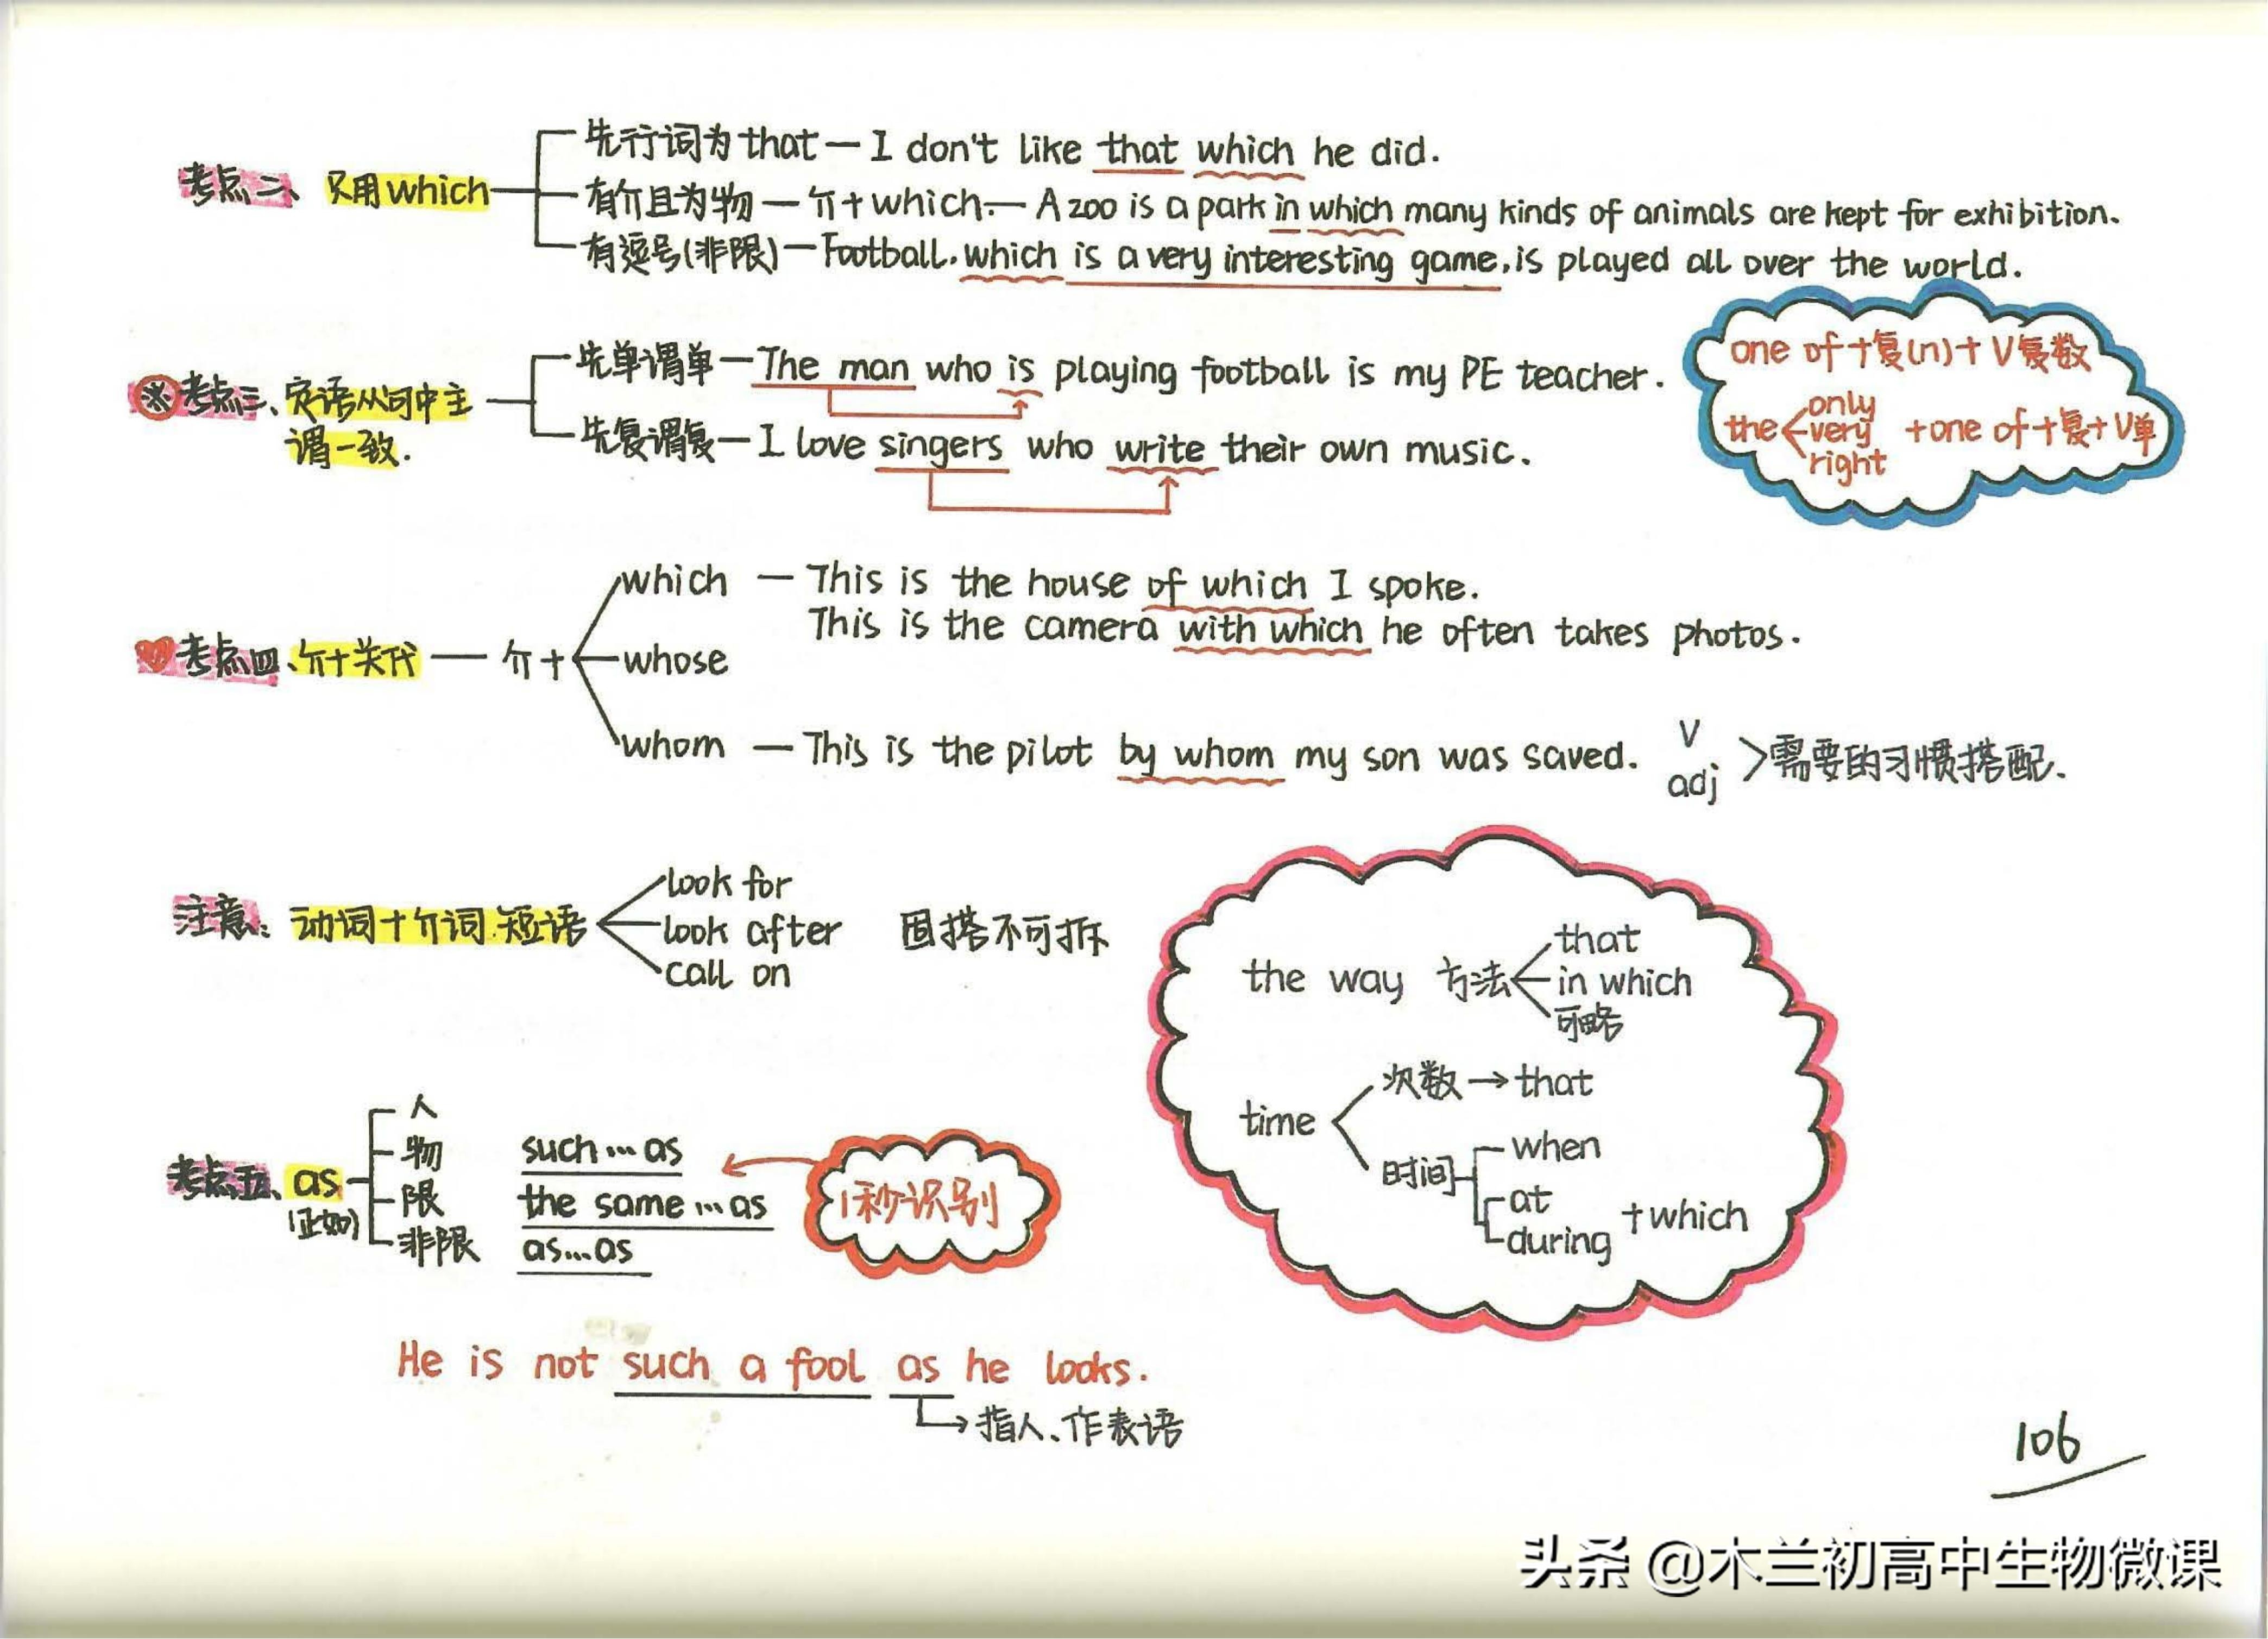 考点二、只用which
先行词为that — I don't like that which he did.
有介且为物 — 介+which — A zoo is a park in which many kinds of animals are kept for exhibition.
有逗号(非限) — Football, which is a very interesting game, is played all over the world.
※考点三、定语从句中主谓一致.
先单谓单 — The man who is playing football is my PE teacher.
先复谓复 — I love singers who write their own music.
one of +复(n)+ V复数
the only very right +one of +复+ V单
考点四、介+关代 — 介+
which — This is the house of which I spoke.
This is the camera with which he often takes photos.
whose
whom — This is the pilot by whom my son was saved.
V adj >需要的习惯搭配.
注意: 动词+介词短语
look for
look after
call on
固搭不可拆
the way 方法
that
in which
可略
time
次数→that
时间
when
at
during
+which
考点五、as
(正如)
人
物
限
非限
such…as
the same…as
as…as
1秒识别
He is not such a fool as he looks.
指人、作表语
106
头条 @木兰初高中生物微课